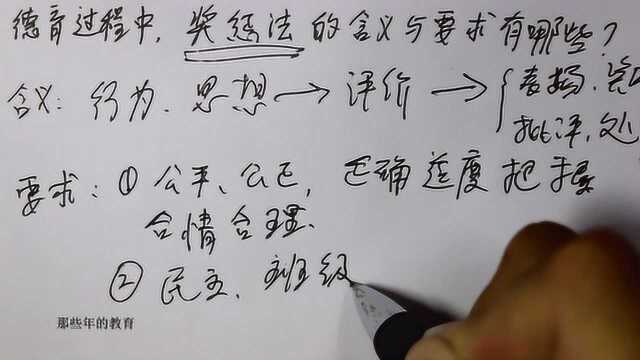 德育过程中,奖惩法的含义与要求有哪些?
含义:行为、思想→评价→{表扬、
批评、处
要求:①公平、公正,正确适度把握
合情合理、
②民主、班级
那些年的教育